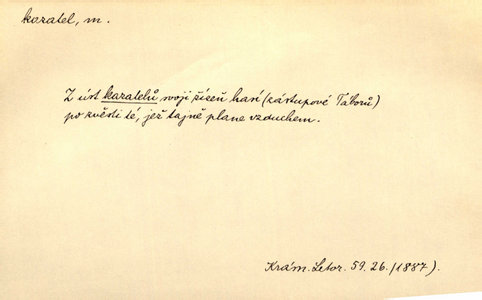 kazatel, m.
Z úst kazatelů svoji žízeň hasí (zástupové Táborů)
po zvěsti té, jež tajně plane vzduchem.
Krám. Letor. 59. 26. (1887).